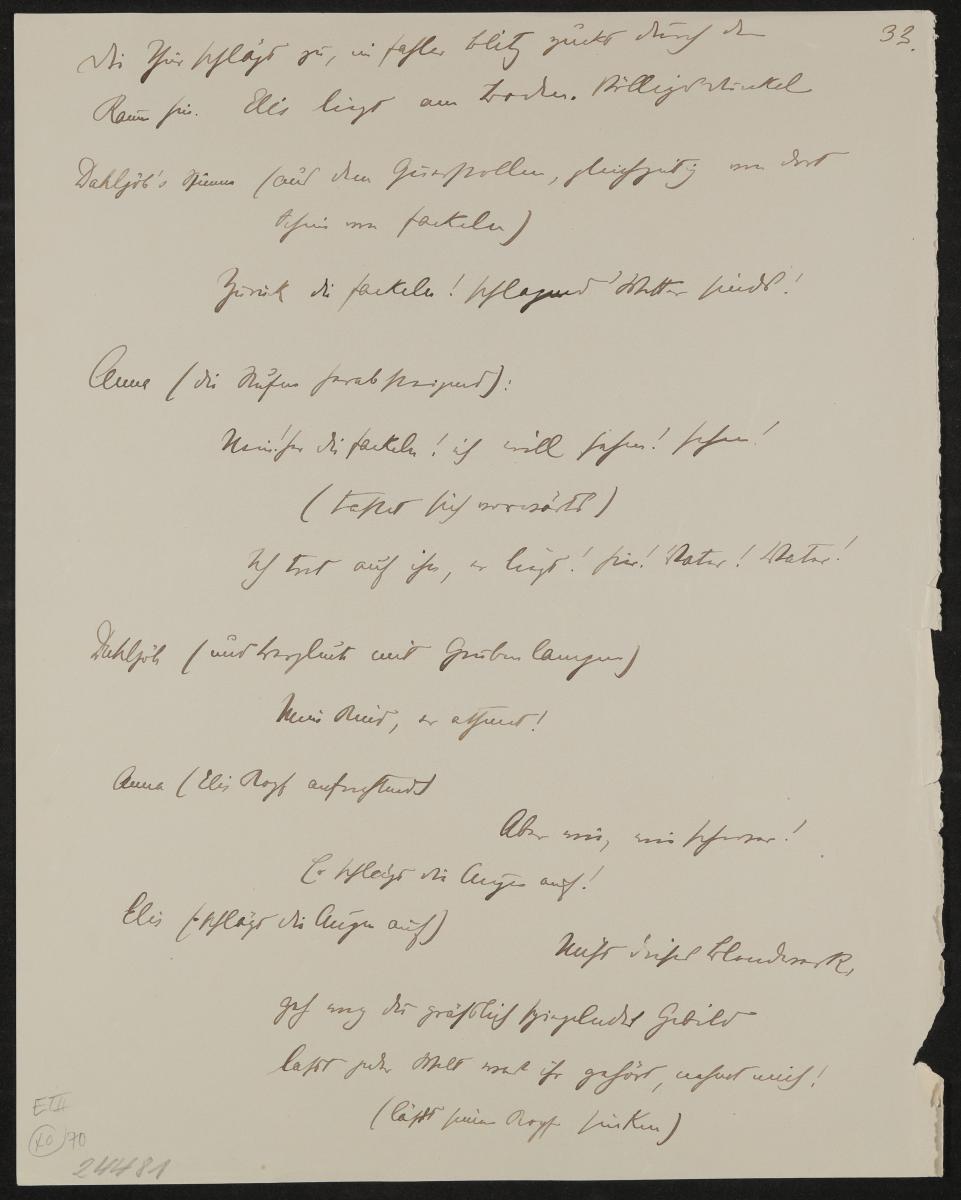 33.
die Thür schlägt zu, ein fahler Blitz zückt durch den
Raum hin. Elis liegt am Boden. Völliges Dunkel
Dahljöh's Stimme (aus dem Querstollen, gleichzeitig von dort
Schein von Fackeln)
Zurück die Fackeln! schlagend' Wetter sinds!
Anna (die Stufen herabsteigend):
Nein! her die Fackeln! ich will sehen! sehen!
(tastet sich vorwärts)
Ich tret auf ihn, er liegt! hier! Vater! Vater!
Dahljöh (und Bergleute mit Grubenlampen)
Mein Kind, er athmet!
Anna (Elis Kopf aufrichtend)
Aber wie, wie schwer!
Er schlägt die Augen auf!
Elis (schlägt die Augen auf)
Nicht dieses Blendwerk,
geh weg du gräßlich spiegelndes Gebild
laßt jeder Welt was ihr gehört, nehmt mich!
(läßt seinen Kopf sinken)
ETH
70
24481